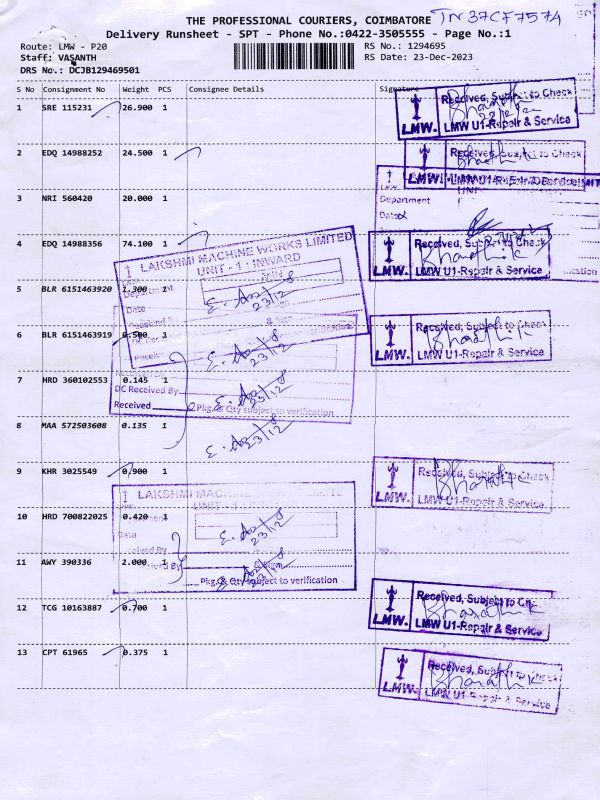 THE PROFESSIONAL COURIERS, COIMBATORE TN37CF7574
Delivery Runsheet - SPT - Phone No.:0422-3505555 - Page No.:1
Route: LMW - P20 RS No.: 1294695
Staff: VASANTH RS Date: 23-Dec-2023
DRS No.: DCJB129469501
S No Consignment No Weight PCS Consignee Details Signature
1 SRE 115231 26.900 1
Received, Subject to Check
LMW. LMW U1-Repair & Service
2 EDQ 14988252 24.500 1
Received, Subject to Check
3 NRI 560420 20.000 1
Department
4 EDQ 14988356 74.100 1
Received, Subject to Check
LMW. LMW U1-Repair & Service
LAKSHMI MACHINE WORKS LIMITED
UNIT - 1 : INWARD
Department
Date
5 BLR 6151463920 1.300 1
23/12
6 BLR 6151463919 0.500 1
Received, Subject to Check
LMW. LMW U1-Repair & Service
23/12
7 HRD 360102553 0.145 1
DC Received By
Received Pkg. & Qty subject to verification
23/12
8 MAA 572503608 0.135 1
23/12
9 KHR 3025549 0.900 1
Received, Subject to Check
LMW. LMW U1-Repair & Service
LAKSHMI MACHINE
10 HRD 700822025 0.420 1
Date
23/12
11 AWY 390336 2.000 1
Pkg. & Qty subject to verification
23/12
12 TCG 10163887 0.700 1
Received, Subject to
LMW. LMW U1-Repair & Service
13 CPT 61965 0.375 1
Received, Subject to Check
LMW. LMW U1-Repair & Service